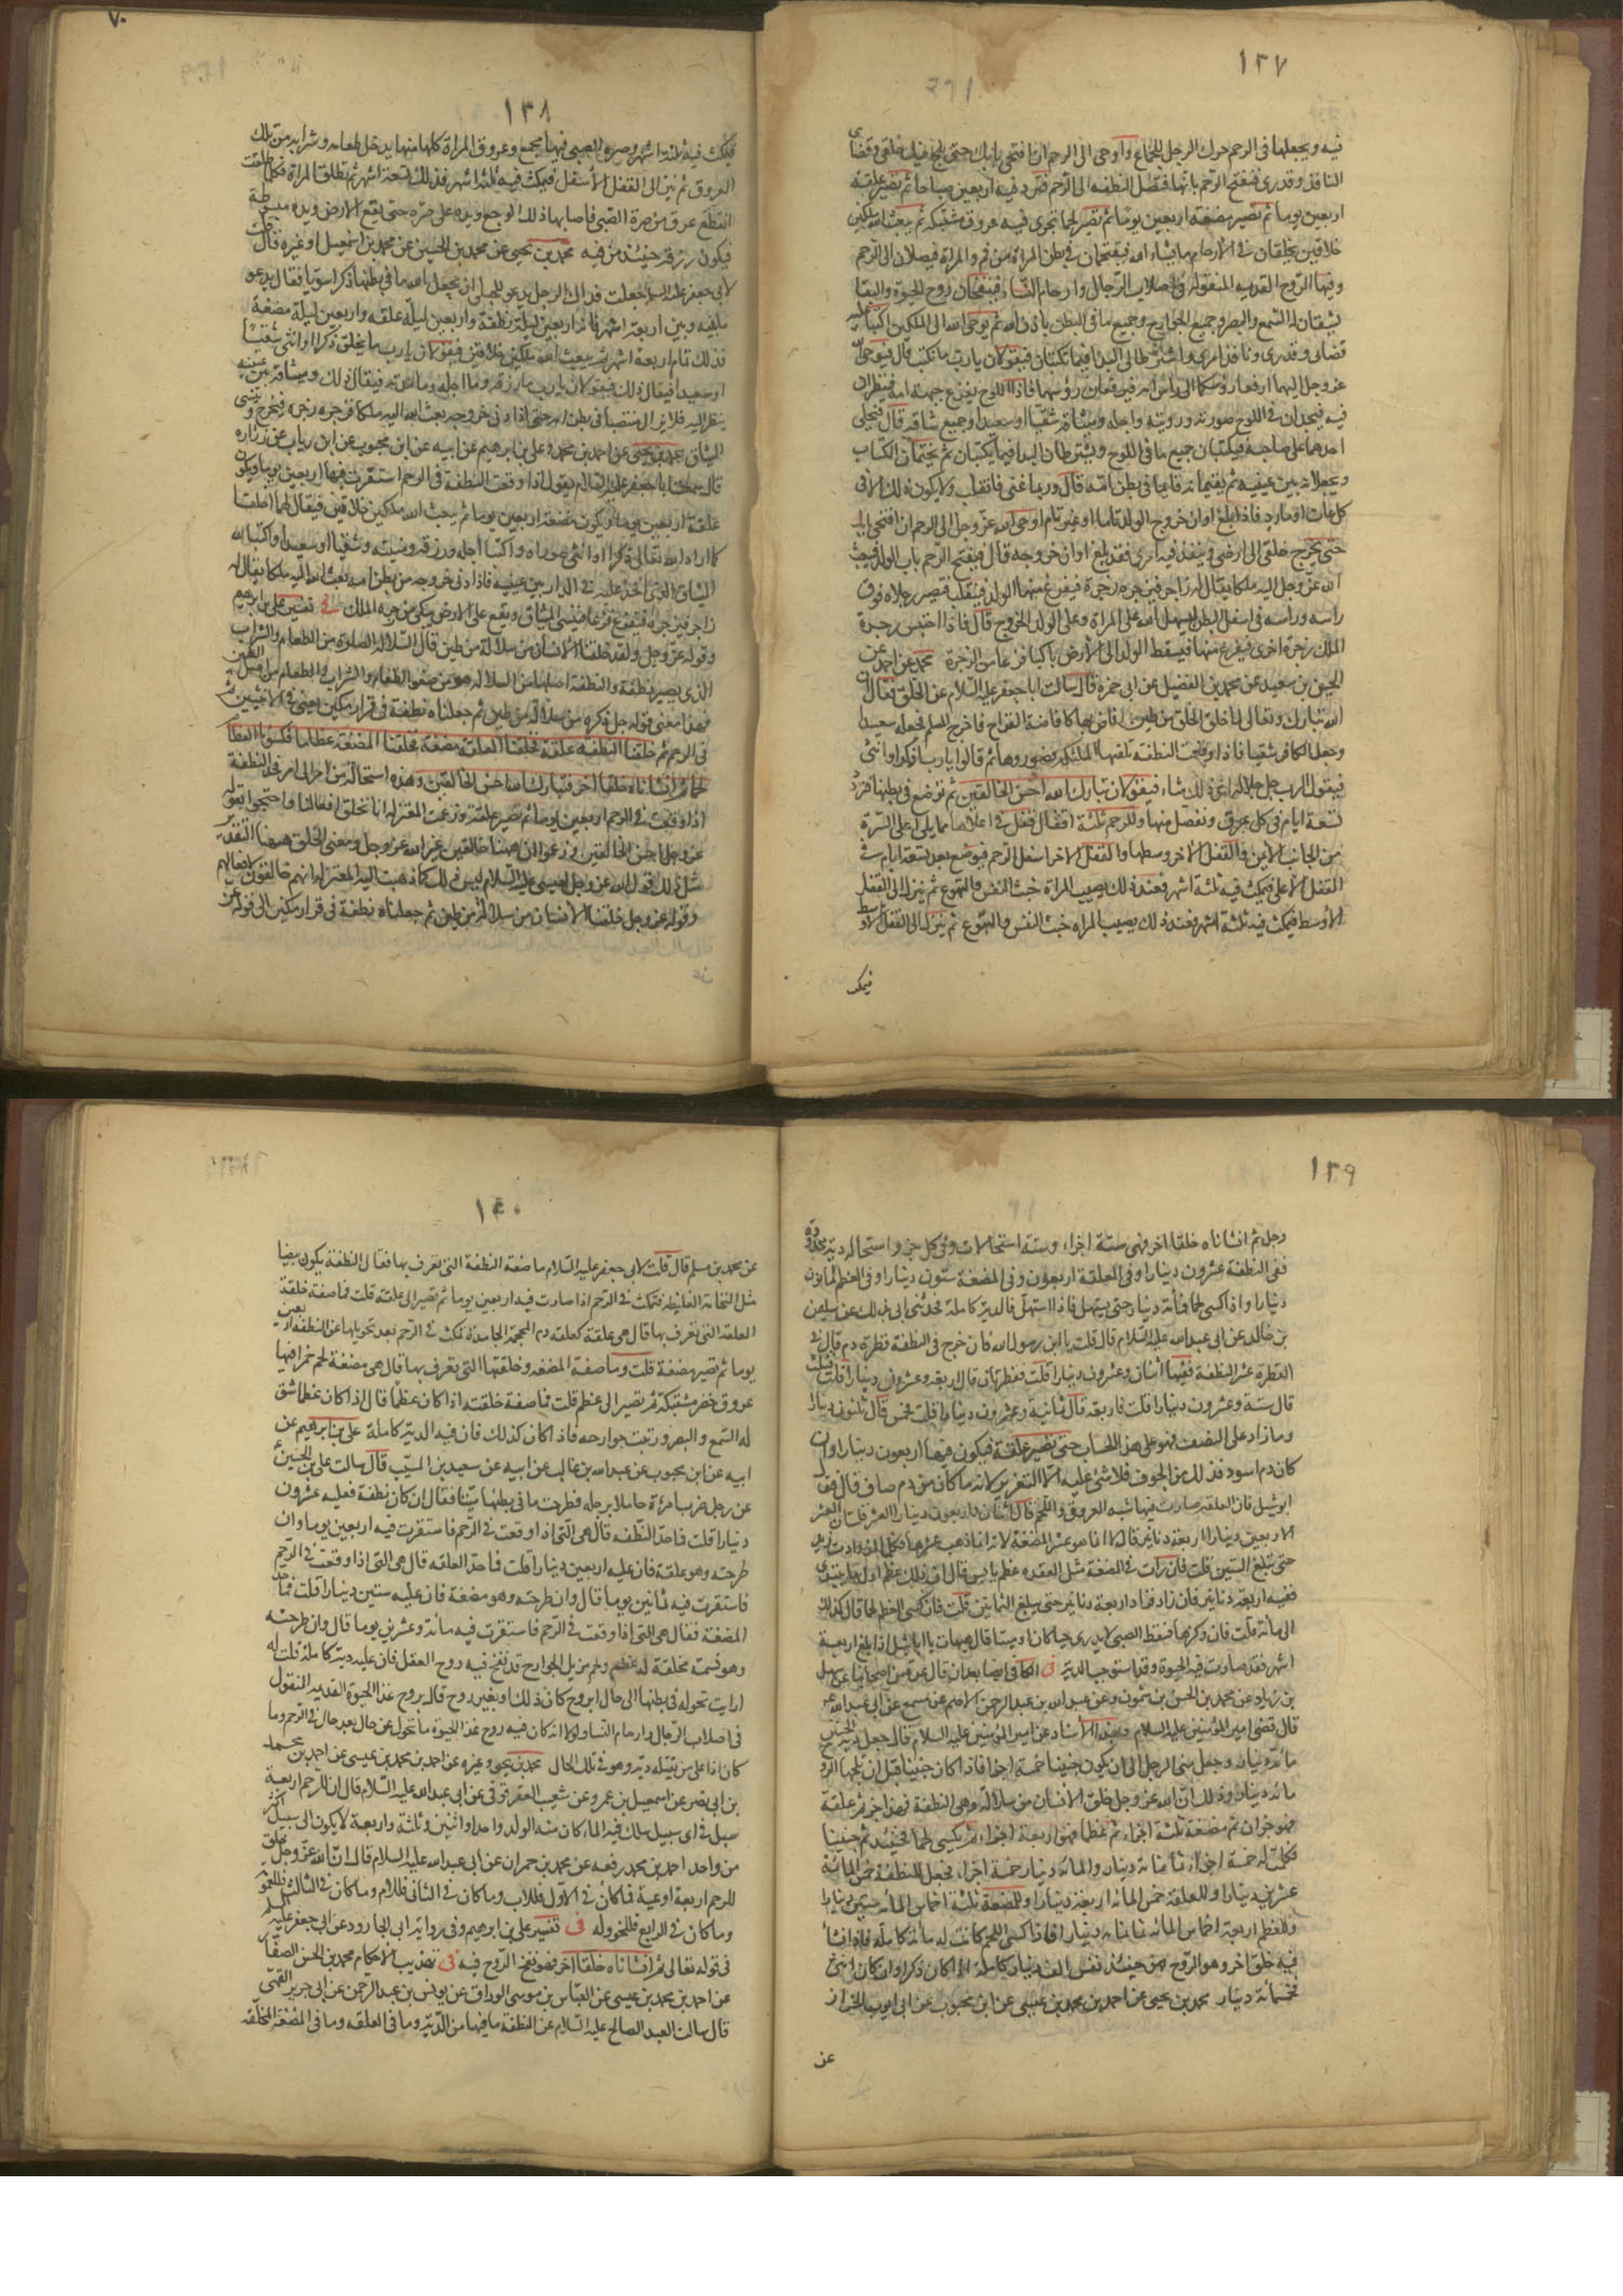 ١٣٧
فيه ويجعلها في الرحم حرك الرجل للجماع واوحى الى الرحم ان افتحى بابك حتى يلج فيك خلقى وقضائى
النافذ وقدرى فتفتح الرحم بابها فتصل النطفه الى الرحم فتردد فيه اربعين صباحا ثم تصير علقة
اربعين يوما ثم تصير مضغة اربعين يوما ثم تصير لحما تجرى فيه عروق مشتبكة ثم يبعث الله ملكين
خلاقين يخلقان في الارحام ما يشاء الله فيقتحمان في بطن المراة من فم المراة فيصلان الى الرحم
وفيها الروح القديمه المنقوله في اصلاب الرجال وارحام النساء فينفخان روح الحيوة والبقا
يشقان له السمع والبصر وجميع الجوارح وجميع ما في البطن باذن الله ثم يوحى الله الى الملكين اكتبا عليه
قضائى وقدرى ونافذ امرى واشترطا لى البدا فيما تكتبان فيقولان يا رب ما نكتب قال فيوحى الله
عز وجل اليهما ارفعا رؤسكما الى راس امه فيرفعان رؤسهما فاذا اللوح يقرع جبهة امه فينظران
فيه فيجدان في اللوح صورته ورويته واجله وميثاقه شقيا او سعيدا وجميع شانه قال فيملى
احدهما على صاحبه فيكتبان جميع ما في اللوح ويشترطان البدا فيما يكتبان ثم يختمان الكتاب
ويجعلانه بين عينيه ثم يقيمانه قايما في بطن امه قال وربما عتى فانقلب ولا يكون ذلك الا في
كل عات او مارد فاذا بلغ اوان خروج الولد تاما او غير تام اوحى الله عز وجل الى الرحم ان افتحى بابك
حتى يخرج خلقى الى ارضى وينفذ فيه امرى فقد بلغ اوان خروجه قال فيفتح الرحم باب الولد فيبعث
الله عز وجل اليه ملكا يقال له زاجر فيزجره زجرة فيفزع منها الولد فينقلب فيصير رجلاه فوق
راسه وراسه في اسفل البطن ليسهل الله على المراة وعلى الولد الخروج قال فاذا احتبس زجره
الملك زجرة اخرى فيفزع منها فيسقط الولد الى الارض باكيا فزعا من الزجرة محمد عن احمد عن
الحسين بن سعيد عن محمد بن الفضيل عن ابى حمزة قال سالت ابا جعفر عليه السلام عن الخلق فقال ان
الله تبارك وتعالى لما خلق الخلق من طين افاض بها كافاضة القداح فاخرج المسلم فجعله سعيدا
وجعل الكافر شقيا فاذا وقعت النطفة تلقتها الملائكة فصوروها ثم قالوا يا رب اذكرا او انثى
فيقول الرب جل جلاله اى ذلك شاء فيقولان تبارك الله احسن الخالقين ثم توضع في بطنها فتردد
تسعة ايام في كل عرق ومفصل منها وللرحم ثلثة اقفال قفل في اعلاها مما يلى اعلى السرة
من الجانب الايمن والقفل الاخر وسطها والقفل الاخر اسفل الرحم فيوضع بعد تسعة ايام في
القفل الاعلى فيمكث فيه ثلثة اشهر فعند ذلك يصيب المراة خبث النفس والتهوع ثم ينزل الى القفل
الاوسط فيمكث فيه ثلثة اشهر فعند ذلك يصيب المراه خبث النفس والتهوع ثم ينزل الى القفل الاوسط
فيمكث
٧٠
١٣٨
فيمكث فيه ثلثة اشهر وصرة الصبى فيها مجمع وعروق المراة كلها منها يدخل طعامه وشرابه من تلك
العروق ثم ينزل الى القفل الاسفل فيمكث فيه ثلثة اشهر فذلك تسعة اشهر ثم تطلق المراة فكلما طلقت
انقطع عرق من صرة الصبى فاصابها ذلك الوجع ويده على صرته حتى يقع الى الارض ويده مبسوطة
فيكون رزقه حينئذ من فيه محمد بن يحيى عن محمد بن الحسين عن محمد بن اسمعيل او غيره قال قلت
لابى جعفر عليه السلام جعلت فداك الرجل يدعو للحبلى ان يجعل الله ما في بطنها ذكرا سويا فقال يدعو
ما بينه وبين اربعة اشهر فانه اربعين ليلة نطفة واربعين ليلة علقه واربعين ليلة مضغة
فذلك تمام اربعة اشهر ثم يبعث الله ملكين خلاقين فيقولان يا رب ما نخلق ذكرا او انثى شقيا
او سعيدا فيقال ذلك فيقولان يا رب ما رزقه وما اجله وما مدته فيقال ذلك وميثاقه بين عينيه
ينظر اليه فلا يزال منتصبا في بطن امه حتى اذا دنى خروجه بعث الله اليه ملكا فزجره زجره فيخرج وينسى
الميثاق محمد بن يحيى عن احمد بن محمد وعلى بن ابرهيم عن ابيه عن ابن محبوب عن ابن رياب عن زرارة
قال سمعت ابا جعفر عليه السلام يقول اذا وقعت النطفة في الرحم استقرت فيها اربعين يوما ويكون
علقة اربعين يوما ويكون مضغة اربعين يوما ثم يبعث الله ملكين خلاقين فيقال لهما اخلقا
كما اراد الله تعالى ذكرا او انثى صوراه واكتبا اجله ورزقه ومنيته وشقيا او سعيدا واكتبا لله
الميثاق الذى اخذ عليه في الذر بين عينيه فاذا دنى خروجه من بطن امه بعث الله اليه ملكا يقال له
زاجر فيزجره فيفزع فزعا فينسى الميثاق ويقع على الارض يبكى من زجرة الملك في تفسير على بن ابرهيم
وقوله عز وجل ولقد خلقنا الانسان من سلالة من طين قال السلاله الصفوة من الطعام والشراب
الذى يصير نطفة والنطفة اصلها من السلاله هو من صفو الطعام والشراب والطعام من اصل الطين
فهذا معنى قوله جل ذكره من سلالة من طين ثم جعلناه نطفة في قرار مكين يعنى في الانثيين ثم
في الرحم ثم خلقنا النطفه علقة فخلقنا العلقة مضغة فخلقنا المضغة عظاما فكسونا العظام
لحما ثم انشاناه خلقا اخر فتبارك الله احسن الخالقين وهذه استحالة من امر الى امر فحد النطفة
اذا وقعت في الرحم اربعين يوما ثم تصير علقة وزعمت المعتزله انا نخلق افعالنا واحتجوا بقوله
عز وجل احسن الخالقين وزعموا ان ههنا خالقين غير الله عز وجل ومعنى الخلق ههنا التقدير
مثل ذلك قول الله عز وجل لعيسى عليه السلام ليس ذلك كما ذهبت اليه المعتزله انهم خالقون لافعالهم
وقوله عز وجل خلقنا الانسان من سلالة من طين ثم جعلناه نطفة في قرار مكين الى قوله عز
١٣٩
وجل ثم انشاناه خلقا اخر فهى ستة اجزاء وستة استحالات وفى كل جزء واستحاله دية محدودة
ففى النطفة عشرون دينارا وفى العلقة اربعون وفى المضغة ستون دينارا وفى العظم ثمانون
دينارا واذا كسى لحما فمأئة دينار حتى يستهل فاذا استهل فالدية كاملة فحدثنى ابى بذلك عن سليمن
بن خالد عن ابى عبد الله عليه السلام قال قلت يا ابن رسول الله فان خرج في النطفة قطرة دم قال في
القطرة عشر النطفة ففيها اثنان وعشرون دينارا قلت فقطرتان قال اربعه وعشرون دينارا قلت فثلث
قال ستة وعشرون دينارا قلت فاربعه قال ثمانية وعشرون دينارا قلت فخمس قال ثلثون دينارا
وما زاد على النصف فهو على هذا الحساب حتى تصير علقة فيكون فيها اربعون دينارا وان
كان دم اسود فذلك من الجوف فلا شئ عليه الا التعزير لانه ما كان من دم صاف قال فقال
ابو شبل فان العلقه صارت فيها شبه العروق واللحم قال اثنان واربعون دينارا العشر قلت ان عشر
الاربعين دينارا اربعة دنانير قال لا انما هو عشر المضغة لانه انما ذهب عشرها فكلما ازدادت زيد
حتى تبلغ الستين قلت فان رات في المضغة مثل العقده عظم يابس قال ان ذلك عظم اول ما يبتدى
ففيه اربعة دنانير فان زاد فزاد اربعة دنانير حتى يبلغ الثمانين قلت فان كسى العظم لحما قال كذلك
الى مائة قلت فان وكزها فسقط الصبى لا يدرى حيا كان او ميتا قال هيهات يا ابا شبل اذا بلغ اربعة
اشهر فقد صارت فيه الحيوة وقد استوجب الدية في الكافى ايضا بعدان قال عدة من اصحابنا عن سهل
بن زياد عن محمد بن الحسن بن شمون وعن عبد الله بن عبد الرحمن الاصم عن مسمع عن ابى عبد الله ع
قال قضى امير المؤمنين عليه السلام وبهذا الاسناد عن امير المؤمنين عليه السلام قال جعل دية الجنين
مائة دينار وجعل منى الرجل الى ان يكون جنينا خمسة اجزا فاذا كان جنينا قبل ان تلجه الروح
مائة دينار وذلك ان الله عز وجل خلق الانسان من سلاله وهى النطفة فهذا جزء ثم علقة
فهو جزان ثم مضغة ثلثة اجزاء ثم عظما فهو اربعة اجزاء ثم يكسى لحما فحينئذ ثم جنينا
فكملت له خمسة اجزاء مائة دينار والمائه دينار خمسة اجزاء فجعل للنطفة خمس المائة
عشرين دينارا وللعلقة خمس المائه اربعين دينارا وللمضغة ثلثة اخماس المائه ستين دينارا
وللعظم اربعة اخماس المائه ثمانين دينارا فاذا كسى اللحم كانت له مائة كاملة فاذا نشأ
فيه خلق اخر وهو الروح فهو حينئذ نفس الف دينار كاملة اذا كان ذكرا وان كان انثى
فخمسمائة دينار محمد بن يحيى عن احمد بن محمد بن عيسى عن ابن محبوب عن ابى ايوب الخزاز
عن
١٤٠
عن محمد بن مسلم قال قلت لابى جعفر عليه السلام ما صفة النطفة التى تعرف بها فقال النطفة يكون بيضا
مثل النخامة الغليظه فتمكث في الرحم اذا صارت فيه اربعين يوما ثم تصير الى علقة قلت فما صفة خلقة
العلقه التى تعرف بها قال هى علقة كعلقه دم المحجمة الجامدة تمكث في الرحم بعد تحويلها عن النطفه اربعين
يوما ثم تصير مضغة قلت وما صفة المضغه وخلقتها التى تعرف بها قال هى مضغة لحم حمرا فيها
عروق خضر مشتبكة ثم تصير الى عظم قلت فما صفة خلقته اذا كان عظما قال اذا كان عظما شق
له السمع والبصر ورتبت جوارحه فاذا كان كذلك فان فيه الدية كاملة على بن ابرهيم عن
ابيه عن ابن محبوب عن عبد الله بن غالب عن ابيه عن سعيد بن المسيب قال سالت على بن الحسين ع
عن رجل ضرب امرءة حاملا برجله فطرحت ما في بطنها ميتا فقال ان كان نطفة فعليه عشرون
دينارا قلت فما حد النطفه قال هى التى اذا وقعت في الرحم فاستقرت فيه اربعين يوما وان
طرحته وهو علقة فان عليه اربعين دينارا قلت فما حد العلقه قال هى التى اذا وقعت في الرحم
فاستقرت فيه ثمانين يوما قال وان طرحته وهو مضغة فان عليه ستين دينارا قلت فما حد
المضغة فقال هى التى اذا وقعت في الرحم فاستقرت فيه مائة وعشرين يوما قال وان طرحته
وهو نسمة مخلقة له عظم ولحم مزيل الجوارح قد نفخ فيه روح العقل فان عليه دية كاملة قلت له
ارايت تحوله في بطنها الى حال ابروح كان ذلك او بغير روح قال بروح غذا الحيوة القديم المنقول
في اصلاب الرجال وارحام النسا ولولا انه كان فيه روح غذا الحيوة ما تحول عن حال بعد حال في الرحم وما
كان اذا على من يقتله دية وهو في تلك الحال محمد بن يحيى وغيره عن احمد بن محمد بن عيسى عن احمد بن محمد
بن ابى نصر عن اسمعيل بن عمرو عن شعيب العقرقوفى عن ابى عبد الله عليه السلام قال ان للرحم اربعة
سبل في اى سبيل سلك فيه الماء كان منه الولد واحد او اثنين وثلثة واربعة لا يكون الى سبيل اكثر
من واحد احمد بن محمد رفعه عن محمد بن حمران عن ابى عبد الله عليه السلام قال ان الله عز وجل خلق
للرحم اربعة اوعية فما كان في الاول فللاب وما كان في الثانى فللام وما كان في الثالث فللعمومة
وما كان في الرابع فللخوله في تفسير على بن ابرهيم وفى رواية ابى الجارود عن ابى جعفر عليه السلم
في قوله تعالى ثم انشاناه خلقا اخر فهو نفخ الروح فيه في تهذيب الاحكام محمد بن الحسن الصفار
عن احمد بن محمد بن عيسى عن العباس بن موسى الوراق عن يونس بن عبد الرحمن عن ابى جرير القمى
قال سالت العبد الصالح عليه السلام عن النطفة ما فيها من الدية وما في العلقه وما في المضغة المخلقه